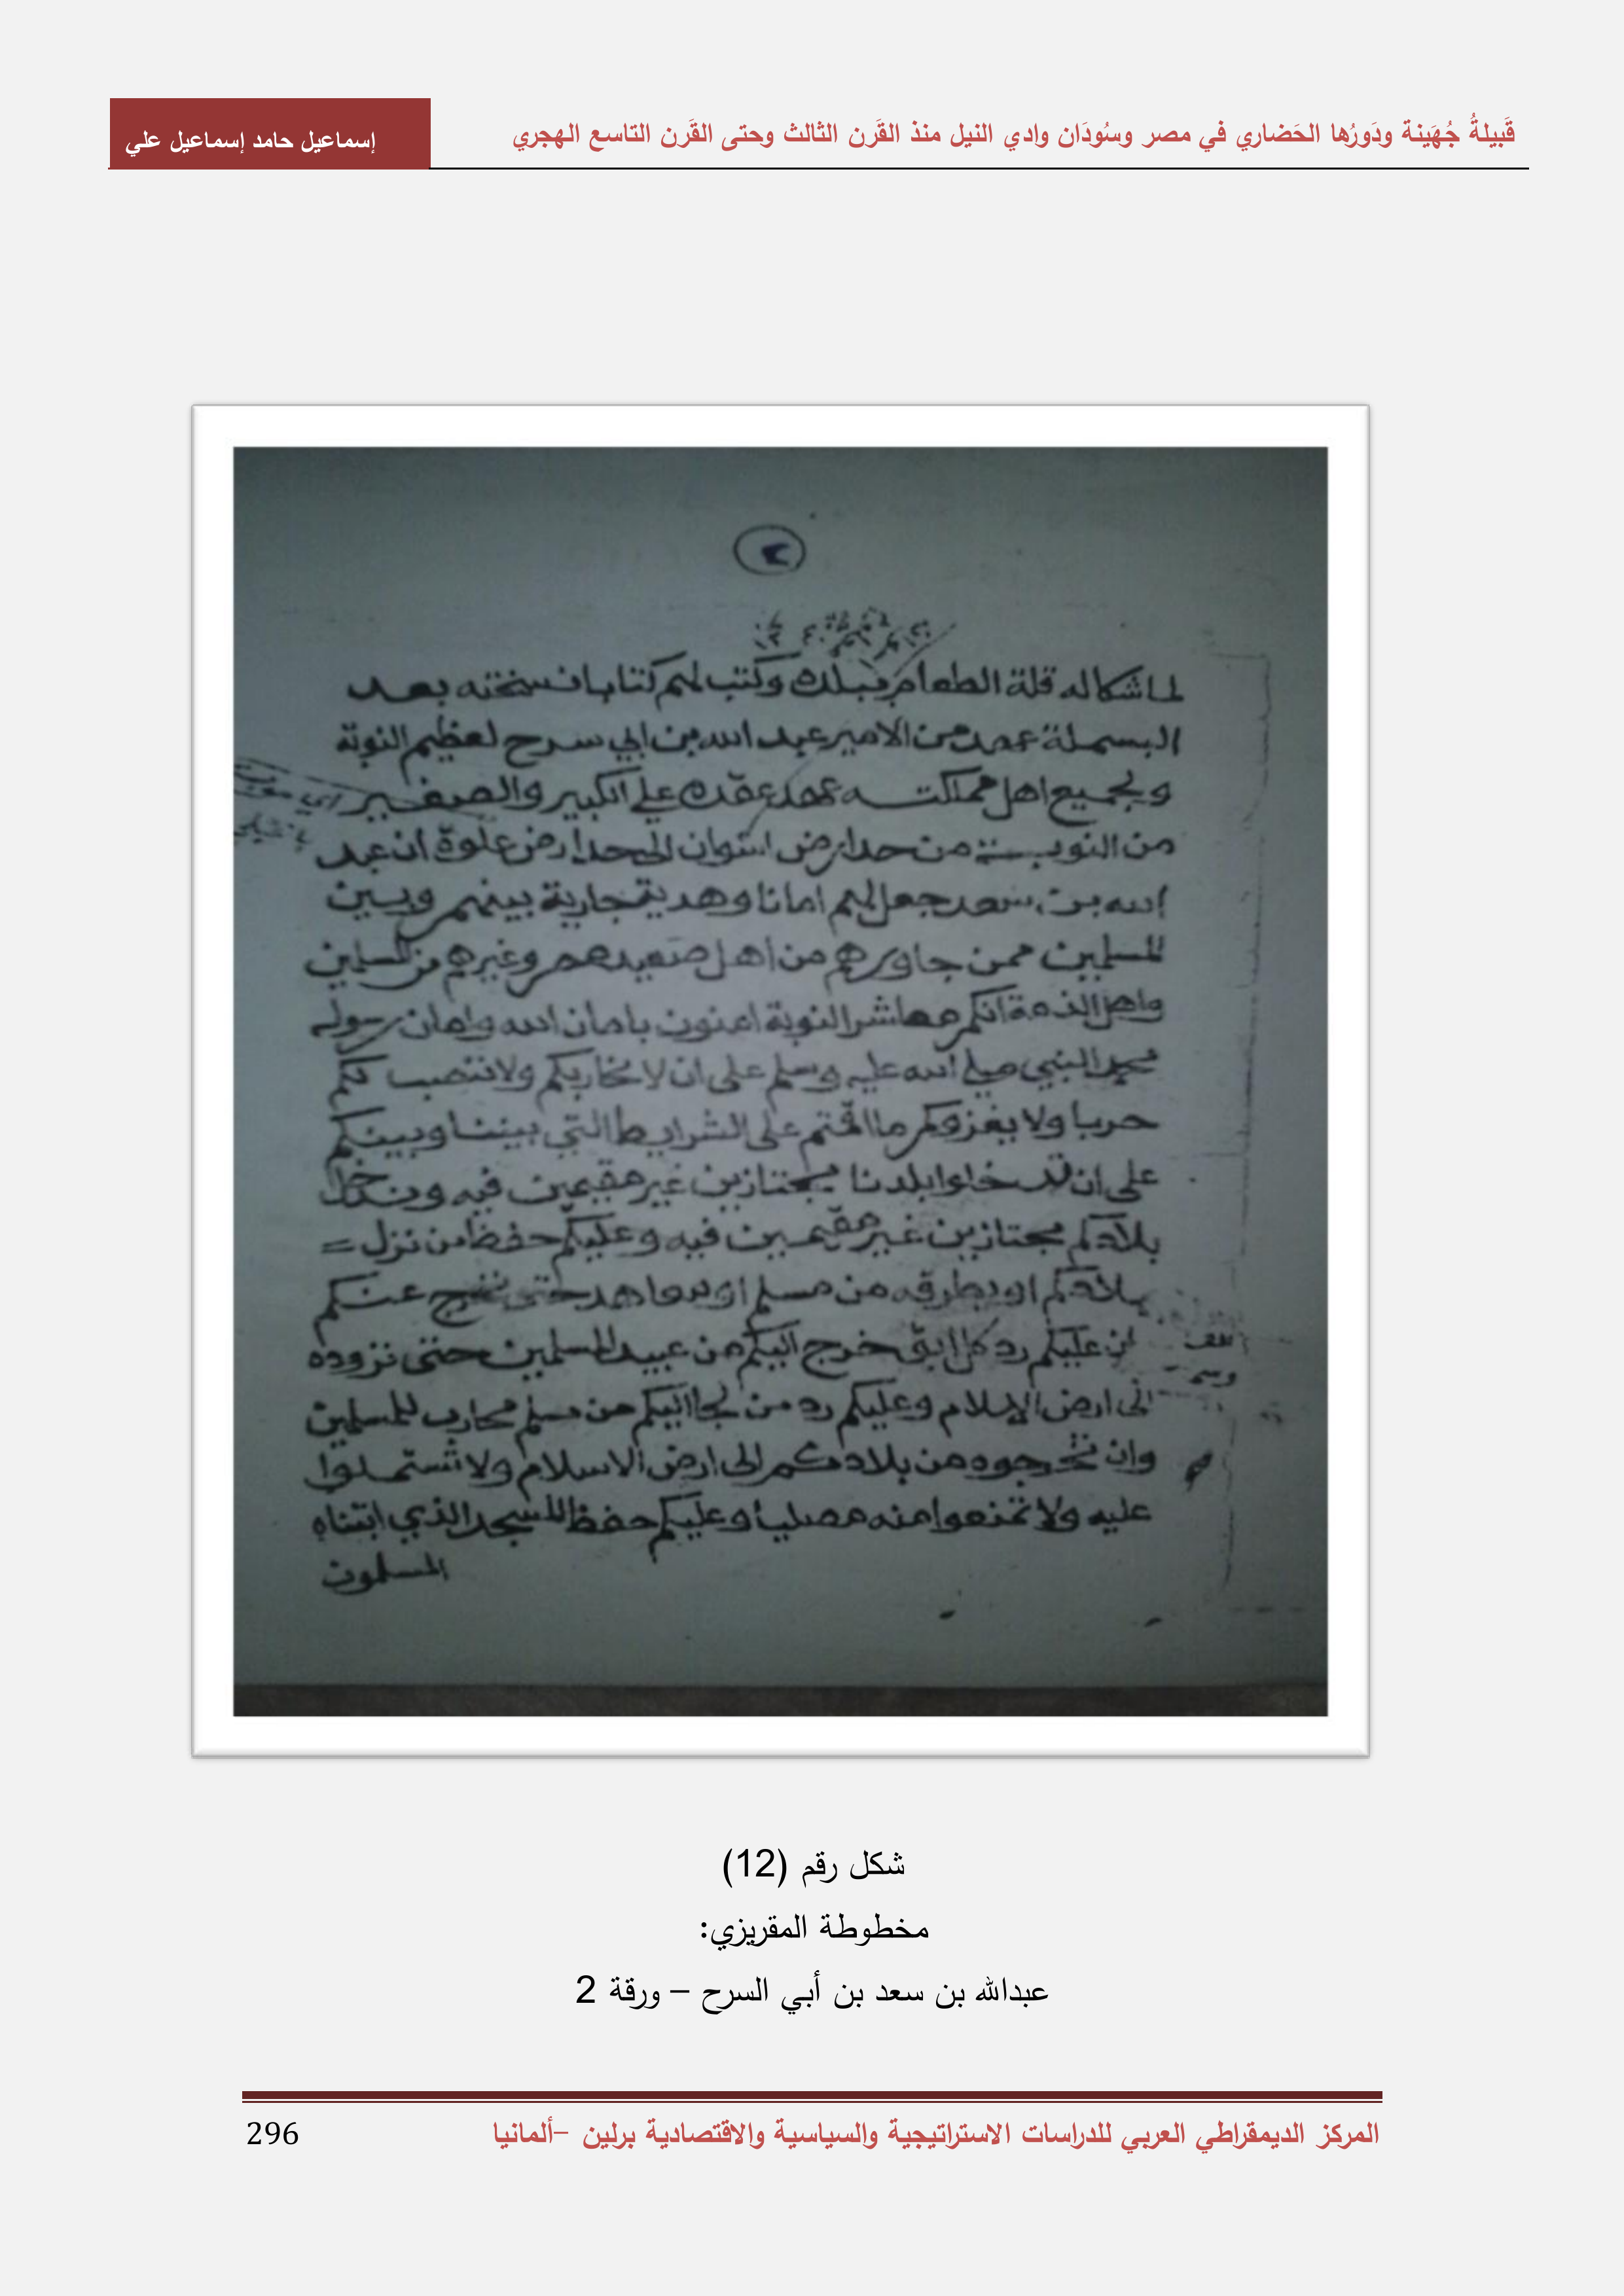 قَبيلةُ جُهَينة ودَورُها الحَضاري في مصر وسُودَان وادي النيل منذ القَرن الثالث وحتى القَرن التاسع الهجري
إسماعيل حامد إسماعيل علي
٢
لما شكا له قلة الطعام ببلده وكتب لهم كتابا نسخته بعد
البسملة عهد من الامير عبد الله بن ابي سرح لعظيم النوبة
ولجميع اهل مملكته عهد عقده على الكبير والصغير
من النوبة من حد ارض اسوان الى حد ارض علوة ان عبد
الله بن سعد جعل لهم امانا وهدنة جارية بينهم وبين
المسلمين ممن جاورهم من اهل صعيد مصر وغيرهم من المسلمين
واهل الذمة انكم معاشر النوبة امنون بامان الله وامان رسوله
محمد النبي صلى الله عليه وسلم على ان لا نحاربكم ولا ننصب لكم
حربا ولا نغزوكم ما اقمتم على الشرايط التي بيننا وبينكم
على ان تدخلوا بلدنا مجتازين غير مقيمين فيه وندخل
بلادكم مجتازين غير مقيمين فيه وعليكم حفظ من نزل =
بلادكم او بطرقه من مسلم او معاهد حتى يخرج عنكم
ان عليكم رد كل ابق خرج اليكم من عبيد المسلمين حتى تردوه
الى ارض الاسلام وعليكم رد من لجا اليكم من مسلم محارب للمسلمين
وان تخرجوه من بلادكم الى ارض الاسلام ولا تستملوا
عليه ولا تمنعوا منه مصليا وعليكم حفظ المسجد الذي ابتناه
المسلمون
شكل رقم (12)
مخطوطة المقريزي:
عبدالله بن سعد بن أبي السرح – ورقة 2
المركز الديمقراطي العربي للدراسات الاستراتيجية والسياسية والاقتصادية برلين –ألمانيا
296